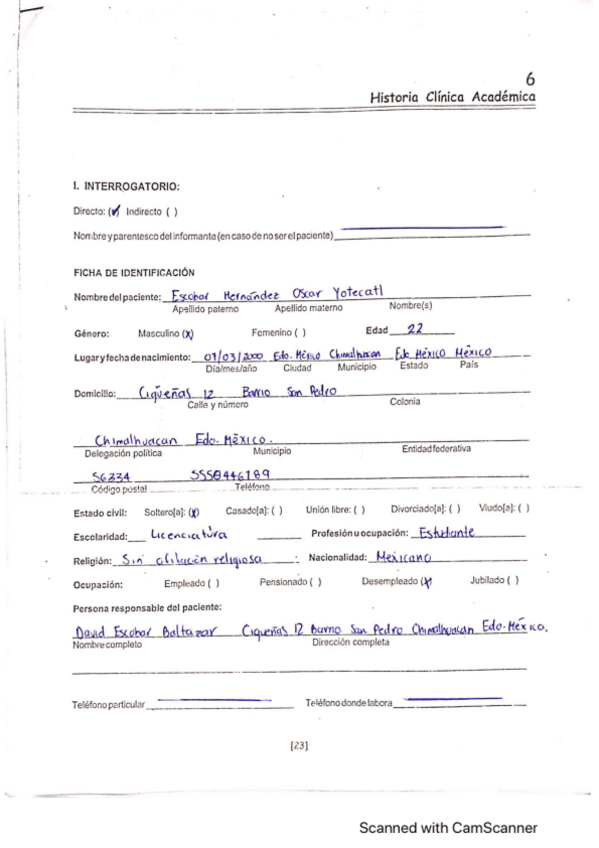 6
Historia Clínica Académica
I. INTERROGATORIO:
Directo: (✓) Indirecto ( )
Nombre y parentesco del informante (en caso de no ser el paciente)
FICHA DE IDENTIFICACIÓN
Nombre del paciente: Escobar Hernández Oscar Yotecatl
Apellido paterno Apellido materno Nombre(s)
Género: Masculino (x) Femenino ( ) Edad 22
Lugar y fecha de nacimiento: 07/03/2000 Edo. México Chimalhuacan Edo. México México
Día/mes/año Ciudad Municipio Estado País
Domicilio: Ciqüeñas 12 Barrio San Pedro
Calle y número Colonia
Chimalhuacan Edo. México.
Delegación política Municipio Entidad federativa
56334 5558446189
Código postal Teléfono
Estado civil: Soltero[a]: (x) Casado[a]: ( ) Unión libre: ( ) Divorciado[a]: ( ) Viudo[a]: ( )
Escolaridad: Licenciatura Profesión u ocupación: Estudiante
Religión: Sin afiliación religiosa Nacionalidad: Mexicano
Ocupación: Empleado ( ) Pensionado ( ) Desempleado (x) Jubilado ( )
Persona responsable del paciente:
David Escobar Baltazar Ciqueñas 12 Barrio San Pedro Chimalhuacan Edo. México.
Nombre completo Dirección completa
Teléfono particular Teléfono donde labora
[23]
Scanned with CamScanner